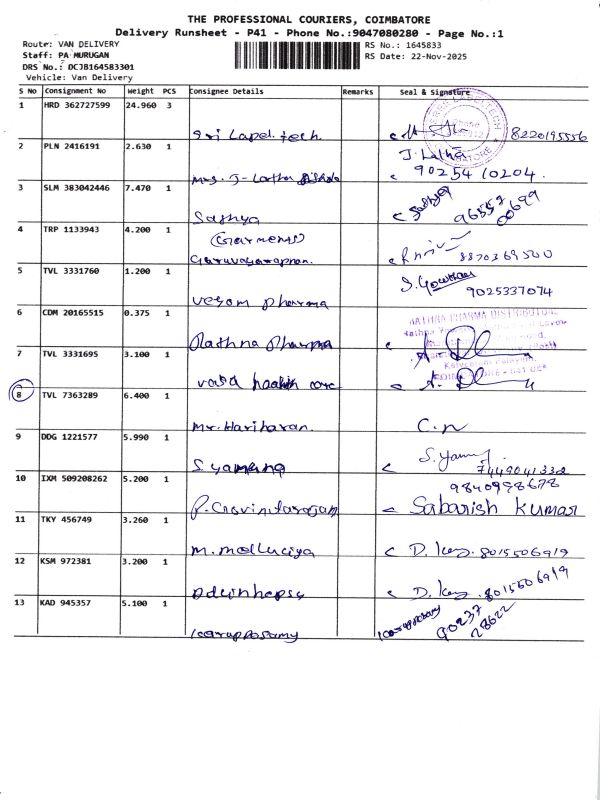 THE PROFESSIONAL COURIERS, COIMBATORE
Delivery Runsheet - P41 - Phone No.:9047080280 - Page No.:1
Route: VAN DELIVERY
RS No.: 1645833
Staff: PA MURUGAN
RS Date: 22-Nov-2025
DRS No.: DCJB164583301
Vehicle: Van Delivery
S No Consignment No Weight PCS Consignee Details Remarks Seal & Signature
1 HRD 362727599 24.960 3
Sri Lapel tech. 8220195556
2 PLN 2416191 2.630 1 J. Latha
Mrs. J- Latha 9025410204.
3 SLM 383042446 7.470 1
Sathya Sathya 96557 00699
4 TRP 1133943 4.200 1 (Garments)
8870369500
5 TVL 3331760 1.200 1 S. Gowtham
Pharma 9025337074
6 CDM 20165515 0.375 1 RATHNA PHARMA DISTRIBUTORS
Rathna Pharma
7 TVL 3331695 3.100 1
health care
8 TVL 7363289 6.400 1
Mr. Hariharan. C.n
9 DDG 1221577 5.990 1
S. 7449041332
10 IXM 509208262 5.200 1 9840998678
Sabarish Kumar
11 TKY 456749 3.260 1
M. D. 8015506919
12 KSM 972381 3.200 1
D. 8015506919
13 KAD 945357 5.100 1
Karupposamy Karupposamy 90237 28622